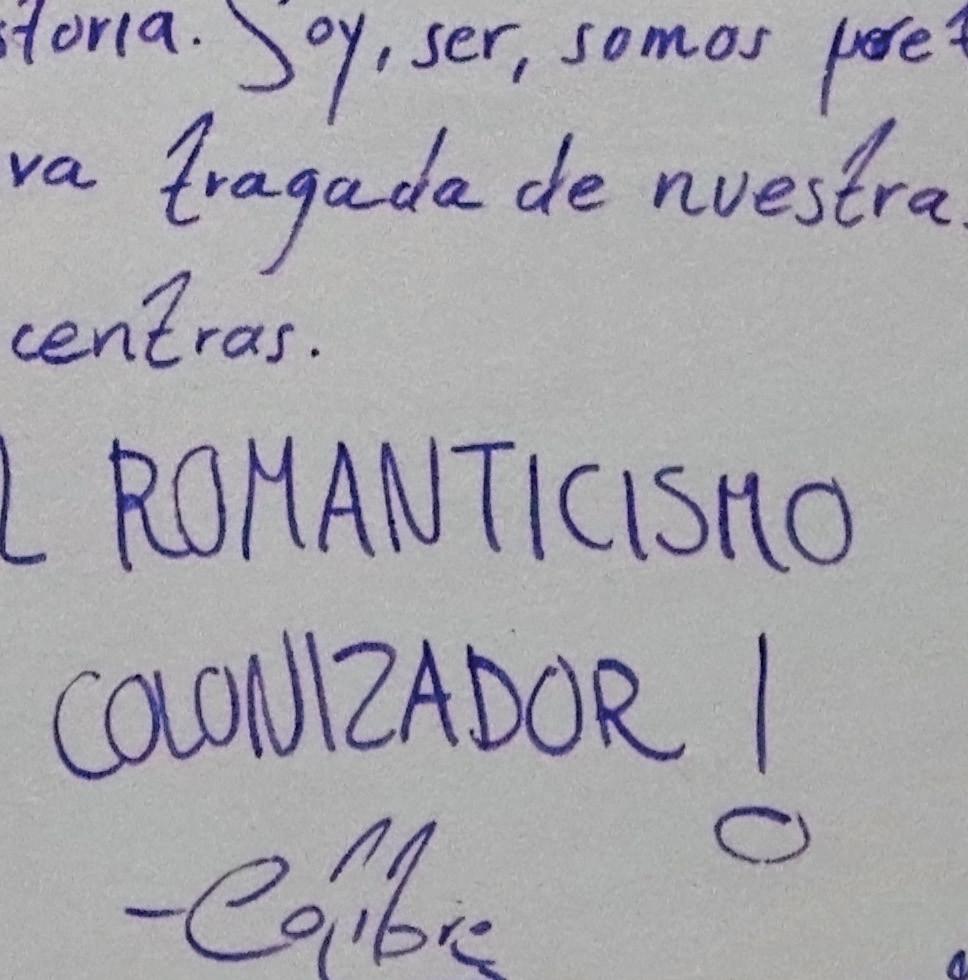 storia. Soy, ser, somos
va tragada de nuestra
centras.
L ROMANTICISMO
COLONIZADOR!